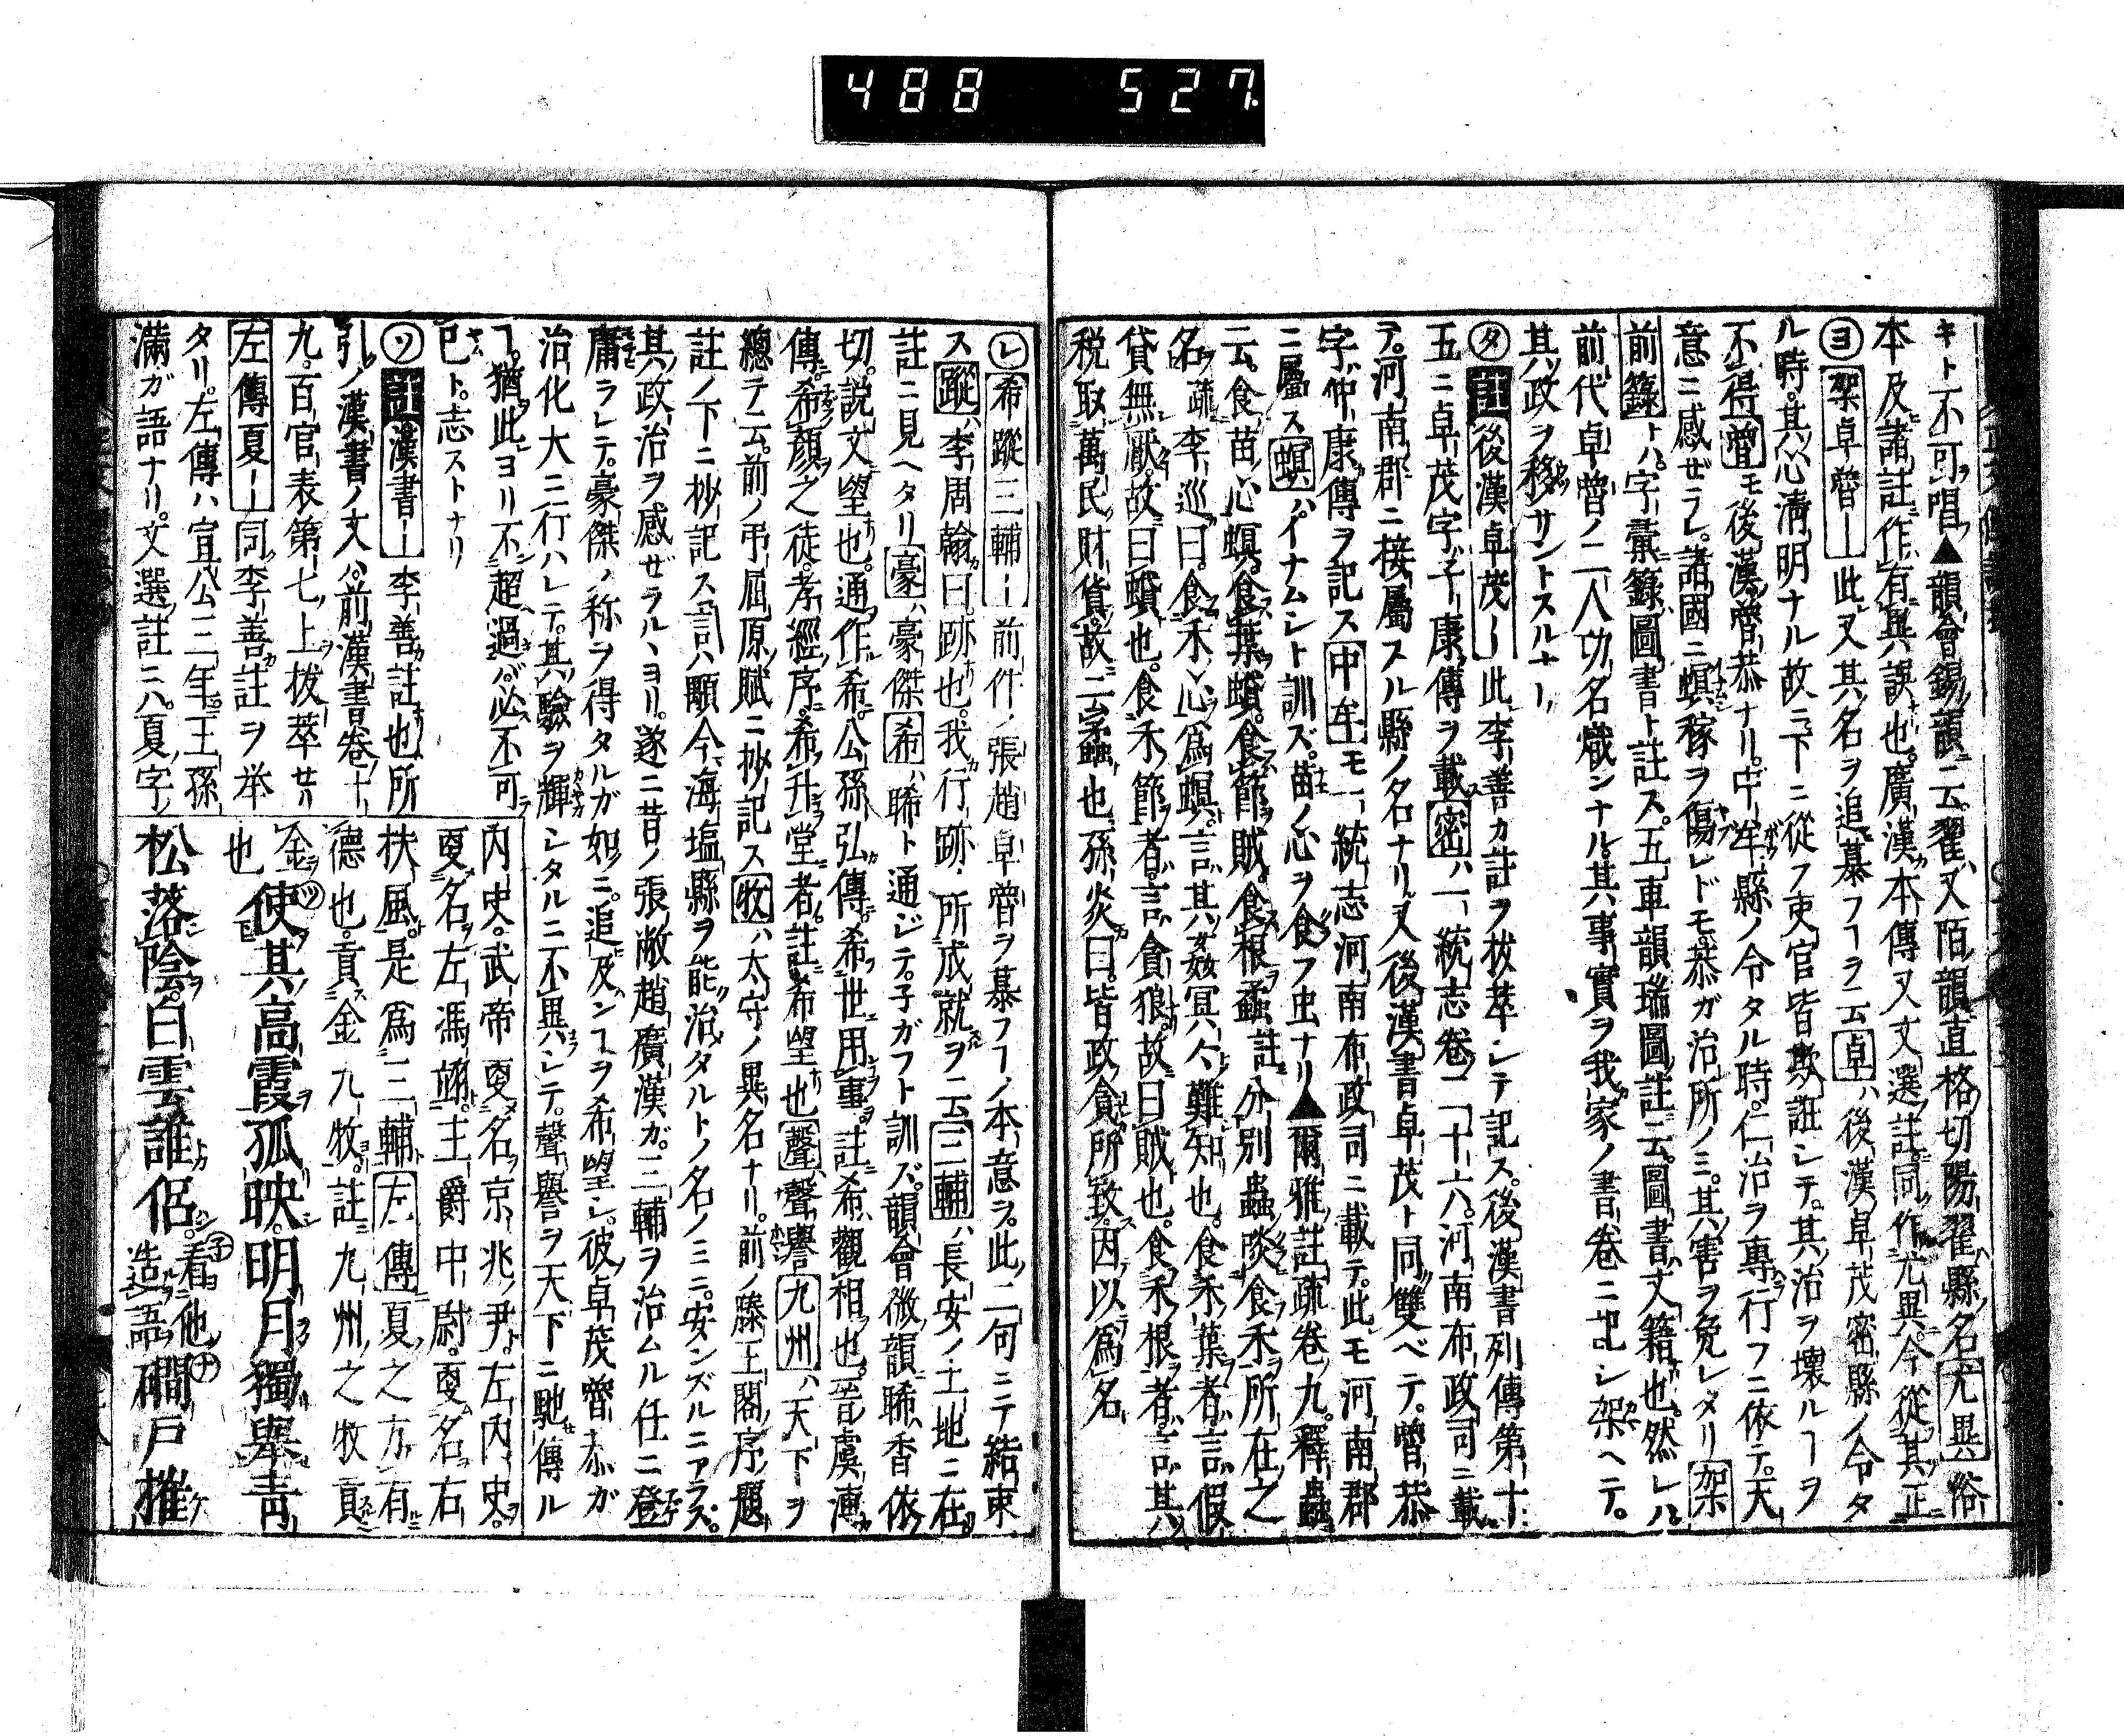 488 527
キト不可唱▲韻會錫韻ニ云翟又陌韻直格切陽翟縣名尤異俗
本及諸註作有異誤也廣漢本傳又文選註同作尤異今從其正
ヨ架卓曾ー此又其名ヲ追慕フヿヲ云卓ハ後漢卓茂密縣ノ令タ
ル時其心清明ナル故ニ下ニ從フ吏官皆欺誑シテ其治ヲ壞ルヿヲ
不得曾モ後漢曾恭ナリ中牟縣ノ令タル時仁治ヲ專行フニ依テ天
意ニ感ぜラレ諸國ニ螟稼ヲ傷レドモ恭ガ治所ノミ其害ヲ免レタリ架
前籙トハ字彙籙圖書ト註ス五車韻瑞圖註云圖書文籍也然レハ
前代卓曾ノ二人功名熾ンナル其事實ヲ我家ノ書卷ニ記シ架ヘテ
其政ヲ移サントスルナリ
タ註後漢卓茂ー此李善カ註ヲ拔萃シテ記ス後漢書列傳第十
五ニ卓茂字子康傳ヲ載密ハ一統志卷二十六河南布政司ニ載
テ河南郡ニ接屬スル縣ノ名ナリ又後漢書卓茂ト同雙ベテ曾恭
字仲康傳ヲ記ス中牟モ一統志河南布政司ニ載テ此モ河南郡
ニ屬ス螟ハイナムシト訓ズ苗ノ心ヲ食フ虫ナリ▲爾雅註疏卷九釋蟲
云食苗心螟食葉蟘食節賊食根蟊註分別蟲啖食禾所在之
名疏李巡曰食禾心爲螟言其姦冥冥難知也食禾葉者言假
貸無厭故曰蟘也食禾節者言貪狼故曰賊也食禾根者言其
税取萬民財貨故云蟊也孫炎曰皆政貪所致因以爲名
レ希蹤三輔ー前件ノ張趙卓曾ヲ慕フヿノ本意ヲ此二句ニテ結束
ス蹤ハ李周翰曰跡也我行跡所成就ヲ云三輔ハ長安ノ土地ニ在
註ニ見ヘタリ豪ハ豪傑希ハ睎ト通ジテ子ガフト訓ズ韻會微韻睎香依
切說文望也通作希公孫弘傳希世用事註希觀相也晉虞溥
傳希顏之徒孝經序希升堂者註希望也聲ハ聲譽九州ハ天下ヲ
總テ云前ノ弔屈原賦ニ抄記ス牧ハ太守ノ異名ナリ前ノ滕王閣序題
註ノ下ニ抄記ス言ハ顒今海塩縣ヲ能治タルトノ名ノミニ安ンズルニアラズ
其政治ヲ感ぜラルヽヨリ遂ニ昔ノ張敞趙廣漢ガ三輔ヲ治ムル任ニ登
庸ラレテ豪傑ノ称ヲ得タルガ如ニ追及ンヿヲ希望シ彼卓茂曾恭ガ
治化大ニ行ハレテ其驗ヲ輝シタルニ不異シテ聲譽ヲ天下ニ馳傳ル
ヿ猶此ヨリ不超過バ必不可
已ト志ストナリ
ソ註漢書ー李善註也所
引ノ漢書ノ文ハ前漢書卷十
九百官表第七上拔萃せリ
左傳夏ー同李善註ヲ举
タリ左傳ハ宣公三年王孫
滿ガ語ナリ文選註ニハ夏字ノ
內史武帝更名京兆尹左內史
更名左馮翊主爵中尉更名右
扶風是爲三輔左傳夏之方有
德也貢金九牧註九州之牧貢
金
也
使其高霞孤映明月獨舉青
松落陰白雲誰侶看他造語磵戸摧